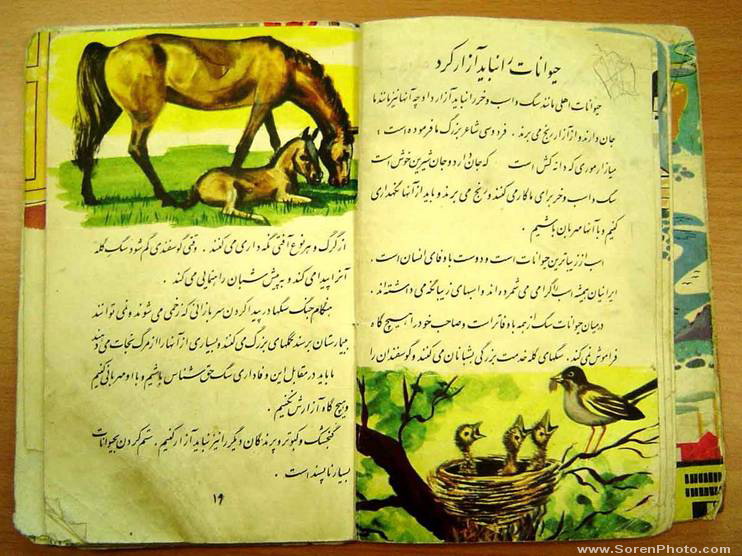 حیوانات را نباید آزار کرد
حیوانات اهلی مانند سگ و اسب و خر را نباید آزار داد چه آنها نیز مانند ما
جان دارند و از آزار رنج می برند . فردوسی شاعر بزرگ ما فرموده است :
میازار موری که دانه کش است که جان دارد و جان شیرین خوش است
سگ و اسب و خر برای ما کار می کنند و رنج می برند و باید از آنها نگهداری
کنیم و با آنها مهربان باشیم .
اسب از زیباترین حیوانات است و دوست با وفای انسان است .
ایرانیان همیشه اسب را گرامی می شمرده اند و اسبهای زیبا نگه می داشته اند .
در میان حیوانات سگ از همه با وفاتر است و صاحب خود را هیچ گاه
فراموش نمی کند . سگهای گله خدمت بزرگی بشبانان می کنند و گوسفندان را
از گرگ و هر نوع آفتی نگه داری می کنند . وقتی گوسفندی گم شود سگ گله
آنرا پیدا می کند و به پیش شبان راهنمایی می کند .
هنگام جنگ سگها در پیدا کردن سربازانی که زخمی می شوند و نمی توانند
بیمارستان برسند کمکهای بزرگ می کنند و بسیاری از آنها را از مرگ نجات می دهند
ما باید در مقابل این وفاداری سگ حق شناس باشیم و با او مهربانی کنیم
و هیچ گاه آزارش نکنیم .
گنجشک و کبوتر و پرندگان دیگر را نیز نباید آزار کنیم . ستم کردن بحیوانات
بسیار ناپسند است .
۱۹
www.SorenPhoto.com